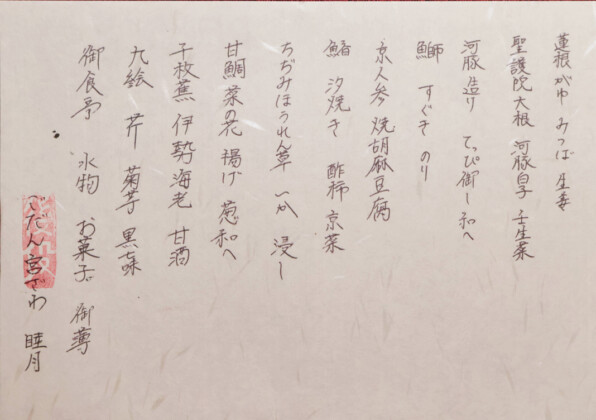 蓮根がゆ みつば 生姜
聖護院大根 河豚白子 壬生菜
河豚造り てっぴ 御し和へ
鰤 すぐき のり
京人参 焼胡麻豆腐
鰆 汐焼き 酢柿 京菜
ちぢみほうれん草 いか 浸し
甘鯛 菜の花 揚げ 葱和へ
千枚蕪 伊勢海老 甘酒
九絵 芹 菊芋 黒七味
御食事 水物 お菓子 御薄
ごだん宮ざわ 睦月